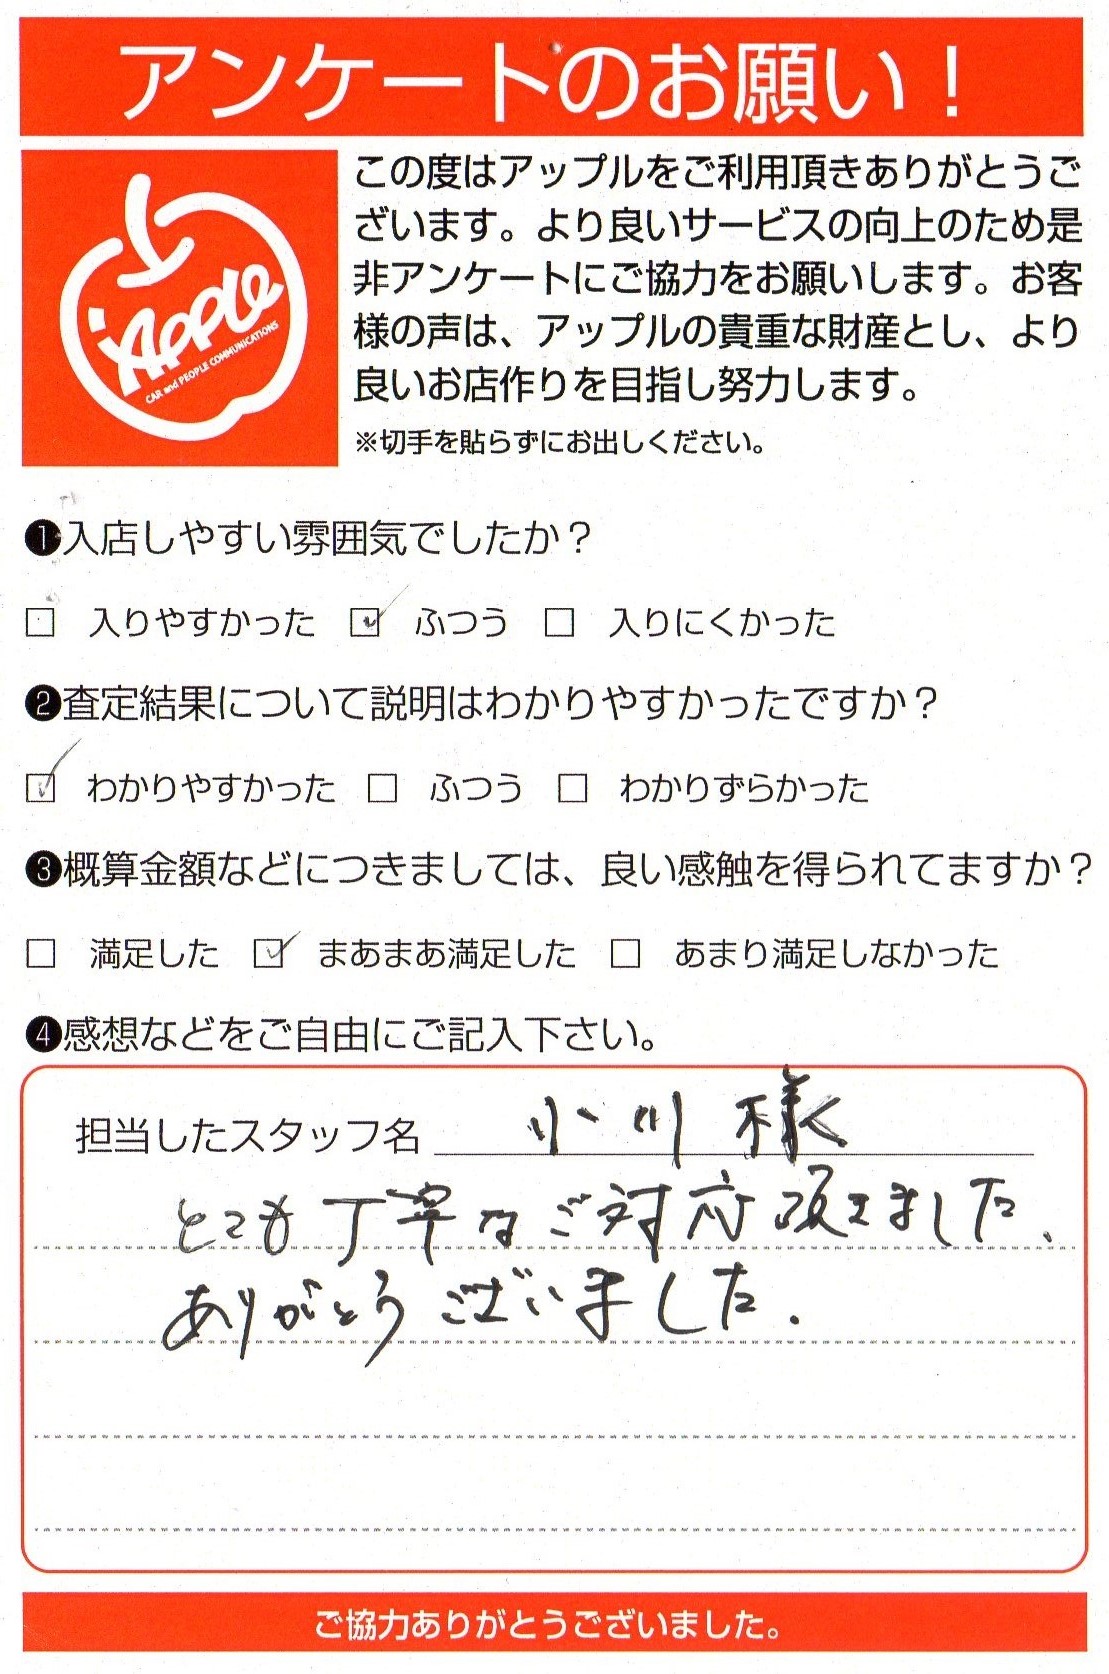 アンケートのお願い！
Apple
CAR and PEOPLE COMMUNICATIONS
この度はアップルをご利用頂きありがとうご
ざいます。より良いサービスの向上のため是
非アンケートにご協力をお願いします。お客
様の声は、アップルの貴重な財産とし、より
良いお店作りを目指し努力します。
※切手を貼らずにお出しください。
❶入店しやすい雰囲気でしたか？
□ 入りやすかった ☑ ふつう □ 入りにくかった
❷査定結果について説明はわかりやすかったですか？
☑ わかりやすかった □ ふつう □ わかりずらかった
❸概算金額などにつきましては、良い感触を得られてますか？
□ 満足した ☑ まあまあ満足した □ あまり満足しなかった
❹感想などをご自由にご記入下さい。
担当したスタッフ名 小川 様
とても丁寧なご対応頂きました、
ありがとうございました.
ご協力ありがとうございました。